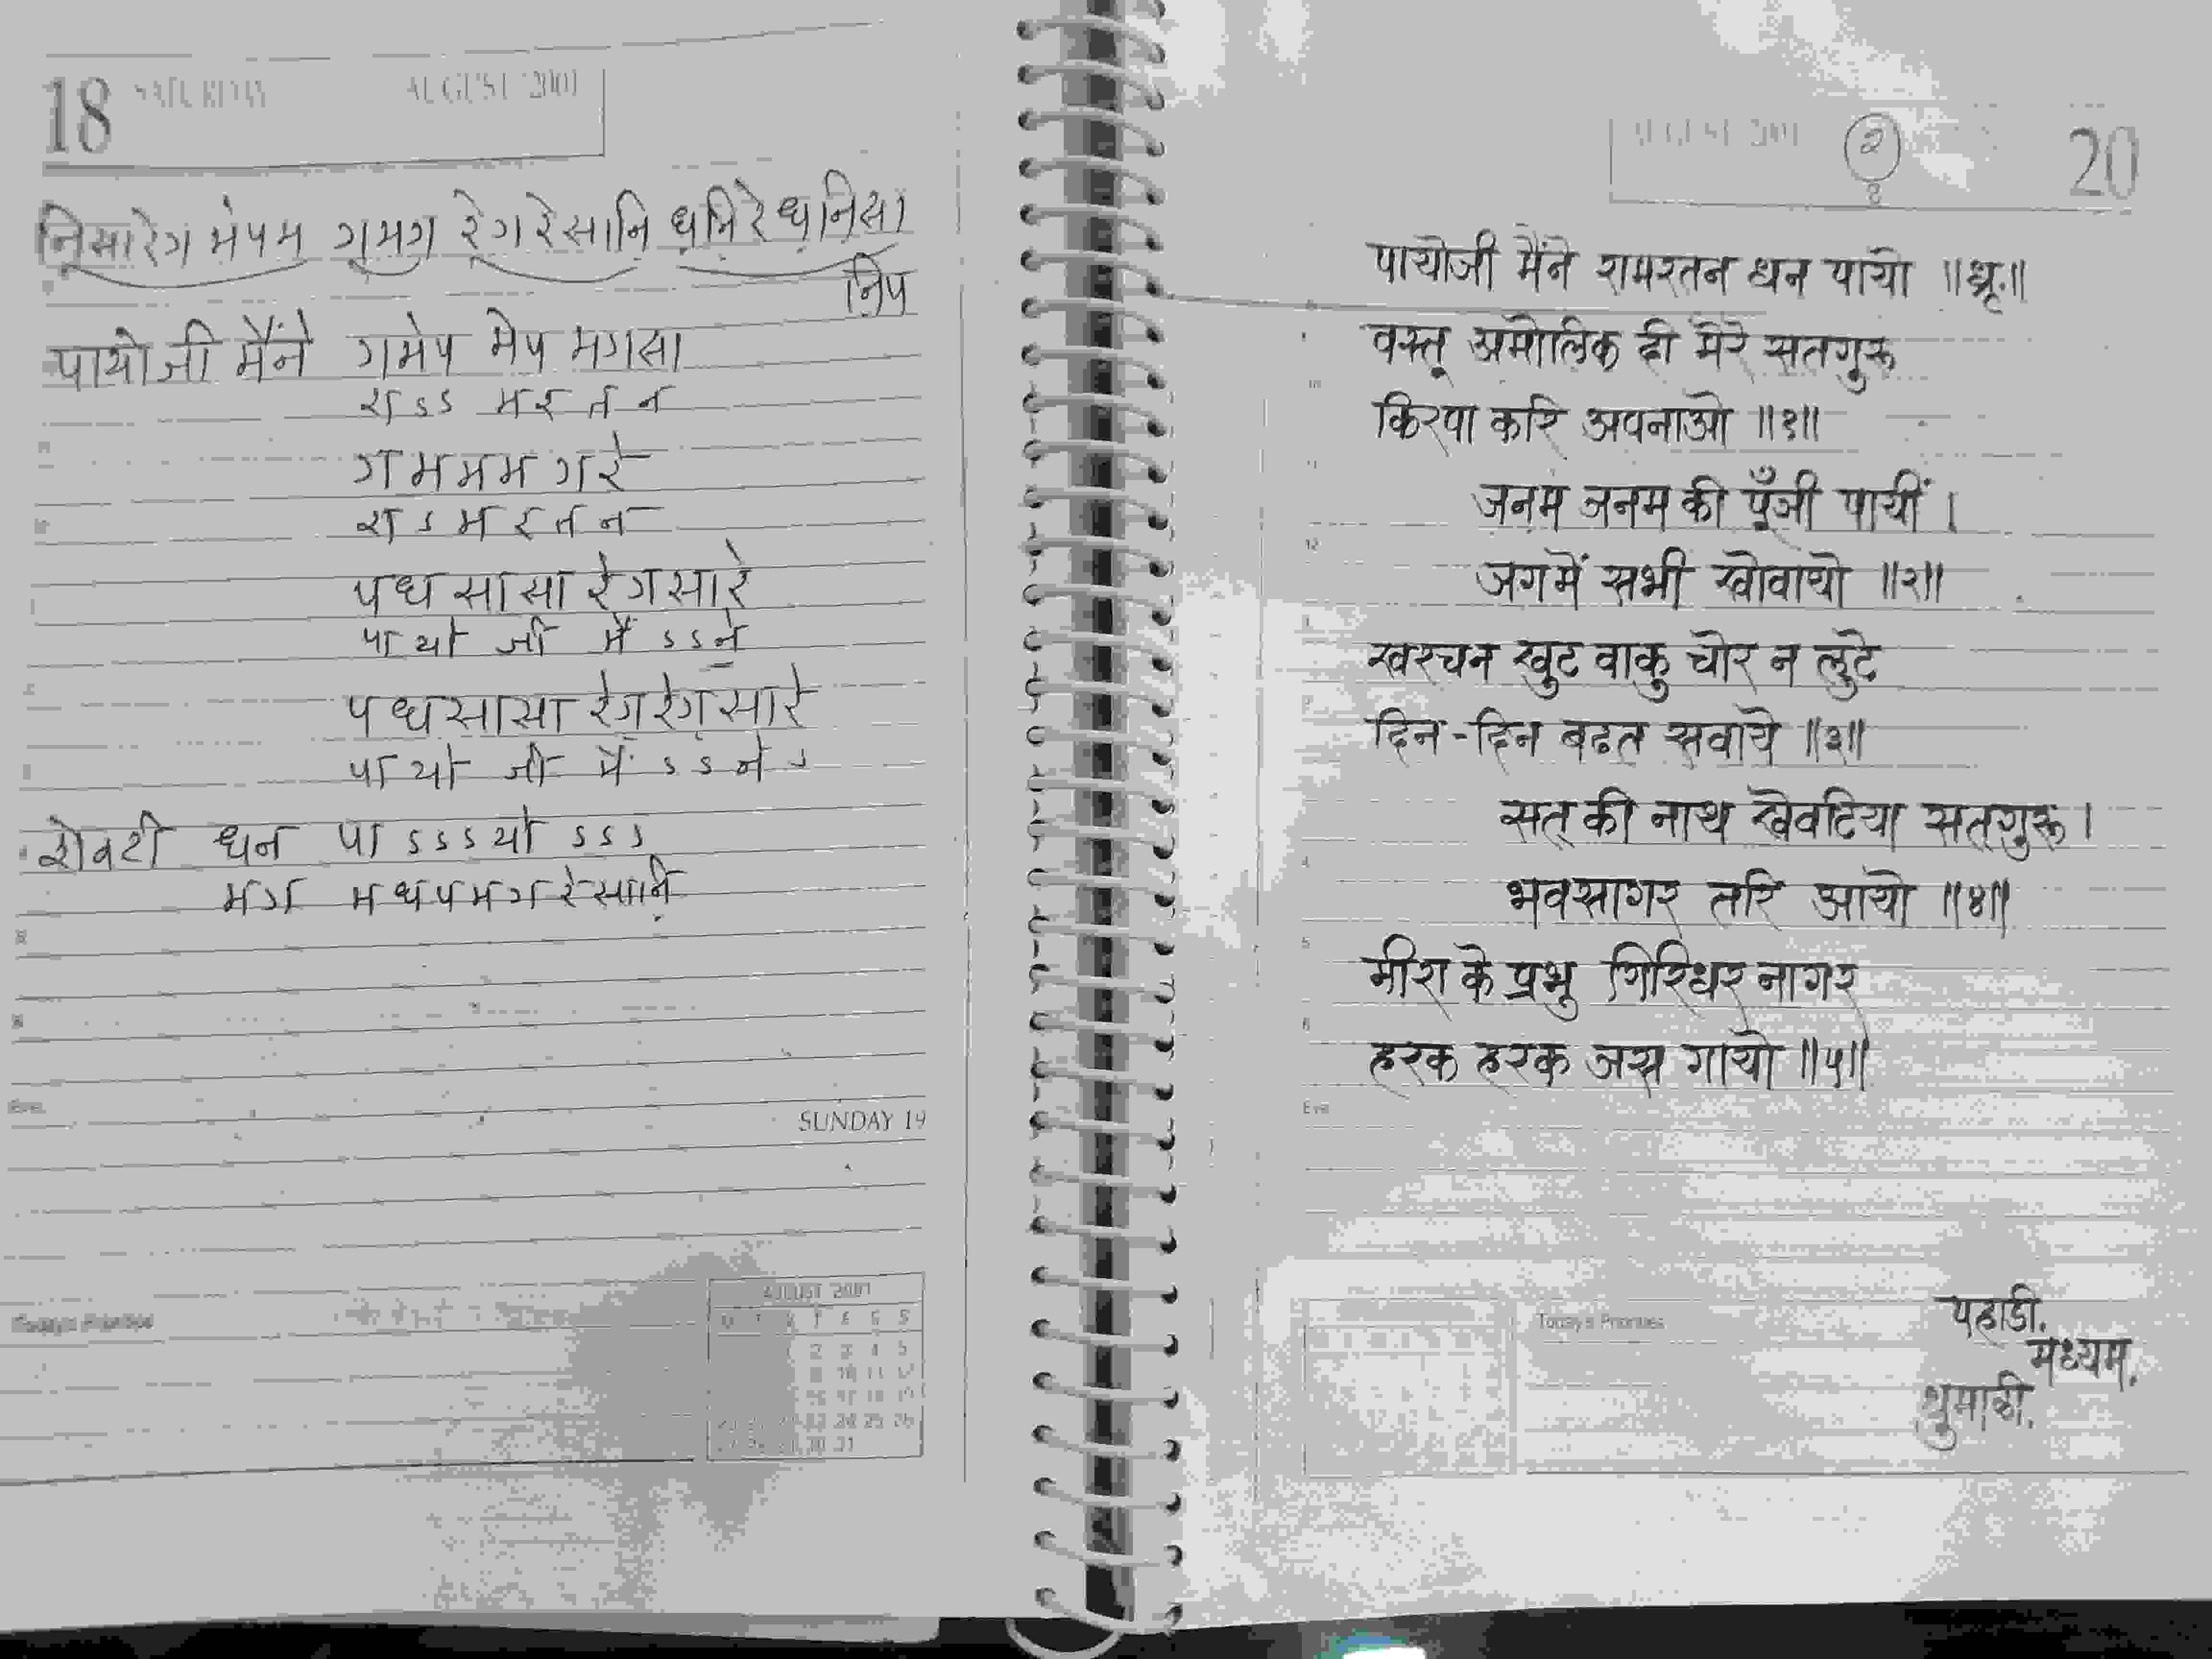 18 SATURDAY AUGUST 2001
निसारेग मेपम गमग रेगरेसानि धनिरेधनिसा
निप
पायोजी मैंने गमेप मेप मगसा
रा ऽ ऽ म र त न
ग म म म ग रे
रा ऽ म र त न
प ध सा सा रे ग सा रे
पा यो जी मैं ऽ ऽ ने
प ध सा सा रेग रेग सा रे
पा यो जी मैं ऽ ऽ ने ऽ
शेवटी धन पा ऽ ऽ ऽ यो ऽ ऽ ऽ
मग म ध प म ग रे सानि
SUNDAY 19
Today's Priorities
AUGUST 2001
AUGUST 2001 २ 20
पायोजी मैंने रामरतन धन पायो ॥ध्रृ.॥
वस्तू अमोलिक दी मेरे सतगुरू
किरपा करि अपनाओ ॥१॥
जनम जनम की पूँजी पायीं ।
जगमें सभी खोवायो ॥२॥
खरचन खुट वाकु चोर न लुटे
दिन-दिन बढत सवाये ॥३॥
सत् की नाथ खेवटिया सतगुरू ।
भवसागर तरि आयो ॥४॥
मीरा के प्रभु गिरिधर नागर
हरक हरक जस गायो ॥५॥
Eve
Today's Priorities
पहाडी.
मध्यम.
धुमाळी.